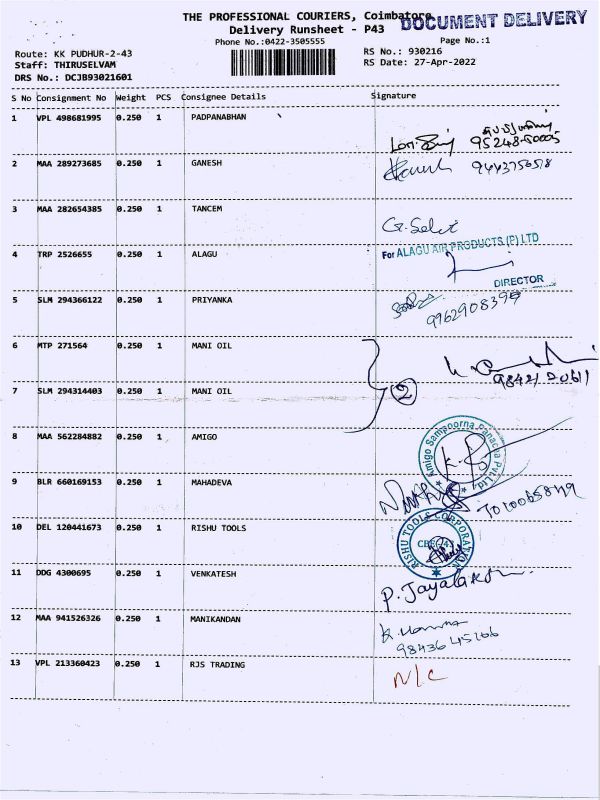 THE PROFESSIONAL COURIERS, Coimbatore
DOCUMENT DELIVERY
Delivery Runsheet - P43
Phone No.:0422-3505555
Page No.:1
Route: KK PUDHUR-2-43
RS No.: 930216
Staff: THIRUSELVAM
RS Date: 27-Apr-2022
DRS No.: DCJB93021601
S No Consignment No Weight PCS Consignee Details Signature
1 VPL 498681995 0.250 1 PADPANABHAN
2 MAA 289273685 0.250 1 GANESH
3 MAA 282654385 0.250 1 TANCEM
G. Selvi
4 TRP 2526655 0.250 1 ALAGU
For ALAGU AIR PRODUCTS (P) LTD
DIRECTOR
5 SLM 294366122 0.250 1 PRIYANKA
6 MTP 271564 0.250 1 MANI OIL
98421 20611
7 SLM 294314403 0.250 1 MANI OIL
2
8 MAA 562284882 0.250 1 AMIGO
Amigo Sampoorna Panacea Pvt Ltd
9 BLR 660169153 0.250 1 MAHADEVA
10 DEL 120441673 0.250 1 RISHU TOOLS
RISHU TOOLS CORPORATION
CBE-43
11 DDG 4300695 0.250 1 VENKATESH
P. Jayalakshmi
12 MAA 941526326 0.250 1 MANIKANDAN
13 VPL 213360423 0.250 1 RJS TRADING
N/C